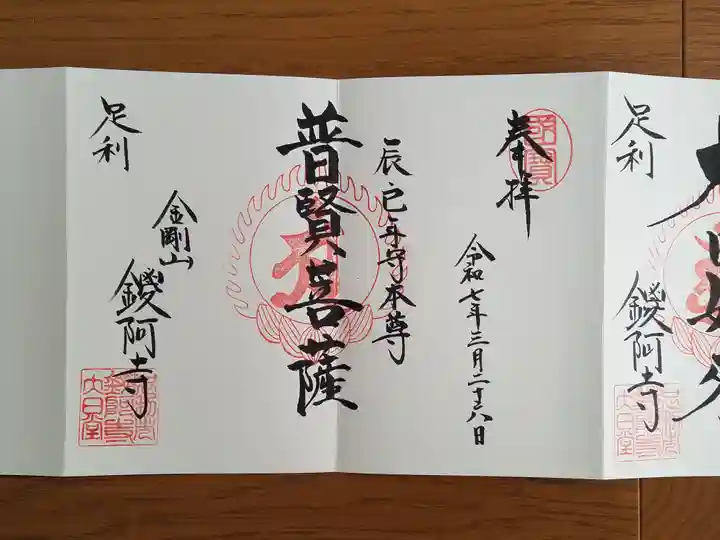 奉拝
令和七年三月二十六日
辰・巳年守本尊
普賢菩薩
金剛山
鑁阿寺
足利
足利
鑁阿寺
大日